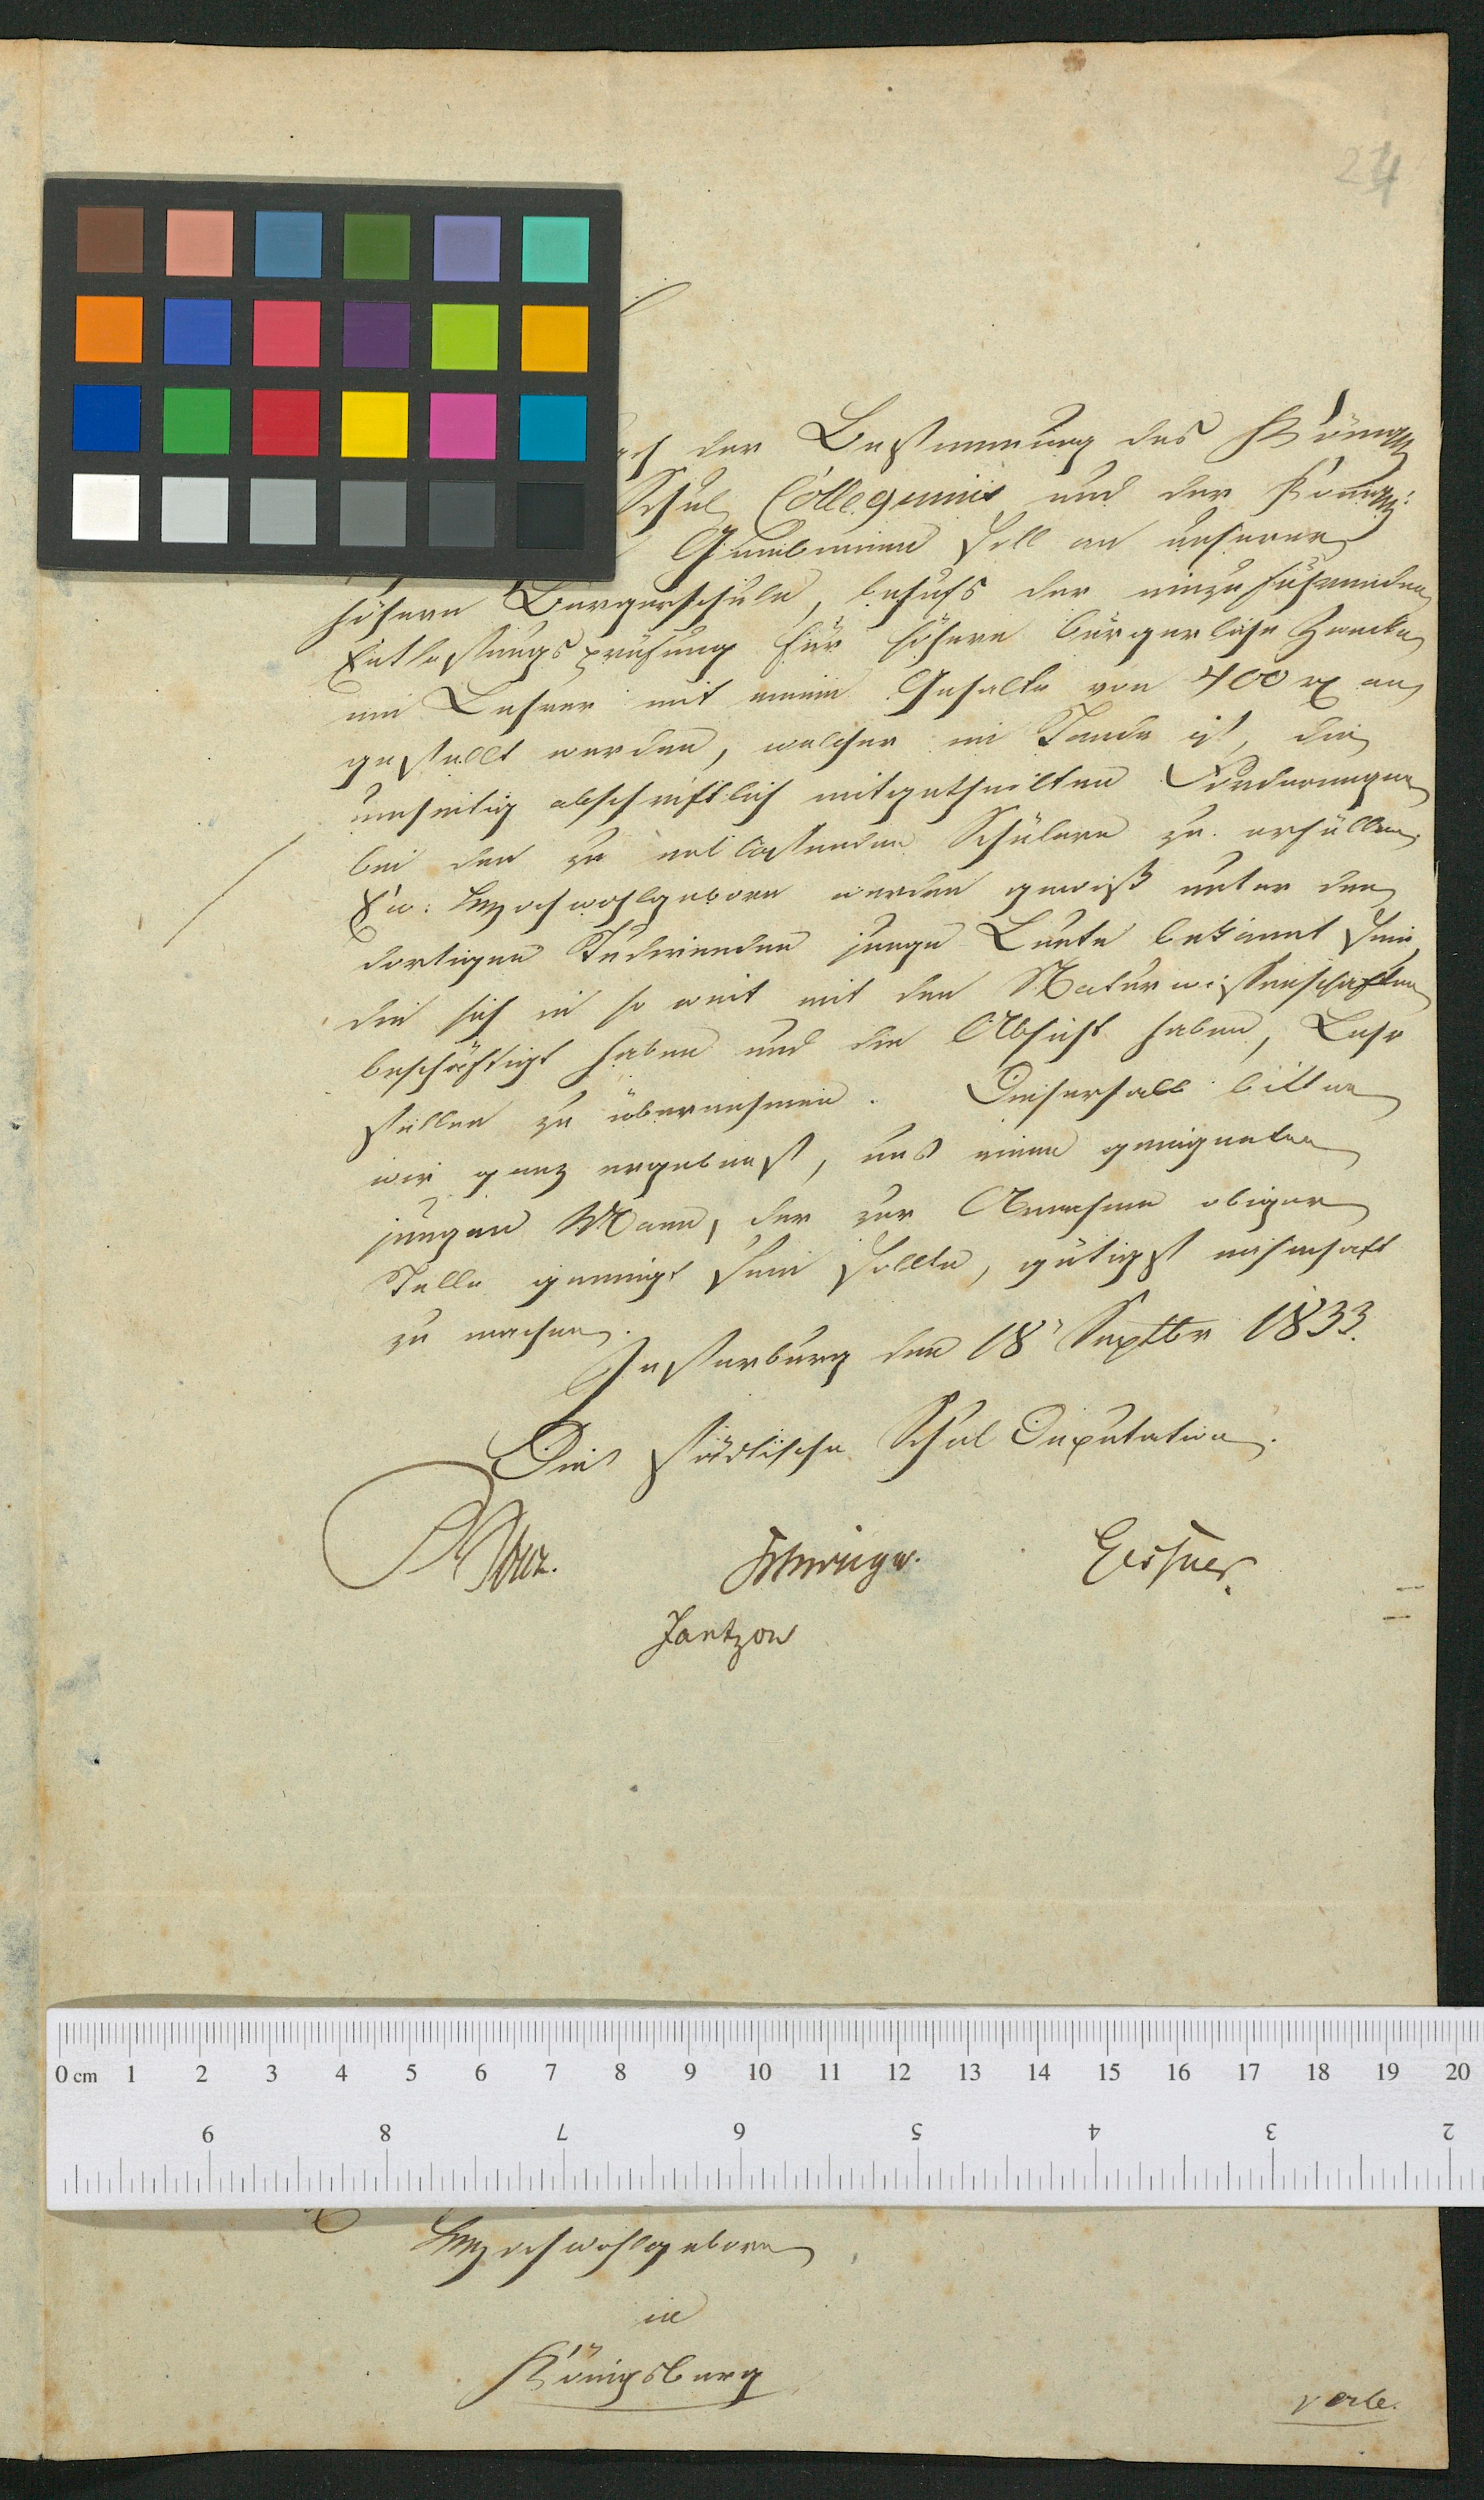 24
der Bestimmung des Königl
Schul Collegiums und der Königl:
Gumbinnen soll an unserer
höhern Bürgerschule, behufs der einzuführenden
Entlassungsprüfung für höhere bürgerliche Zwecke
ein Lehrer mit einem Gehalte von 400 rt an
gestellt werden, welcher im Stande ist, die
umseitig abschriftlich mitgetheilten Forderungen
bei den zu entlassenden Schülern zu erfüllen.
Ew: Hochwohlgeboren werden gewiß unter den
dortigen Studirenden junge Leute bekannt sein,
die sich in so weit mit den Naturwissenschaften
beschäftigt haben und die Absicht haben, Lehr
stellen zu übernehmen. Dieserhalb bitten
wir ganz ergebenst, uns einen geeigneten
jungen Mann, der zur Annahme obiger
Stelle geneigt sein sollte, gütigst namhaft
zu machen.
Insterburg den 18' Septbr 1833.
Die städtische Schul Deputation.
Eisner.
Jantzon
Hochwohlgeboren
in
Königsberg
verte.
0 cm 1 2 3 4 5 6 7 8 9 10 11 12 13 14 15 16 17 18 19 20
9 8 7 6 5 4 3 2